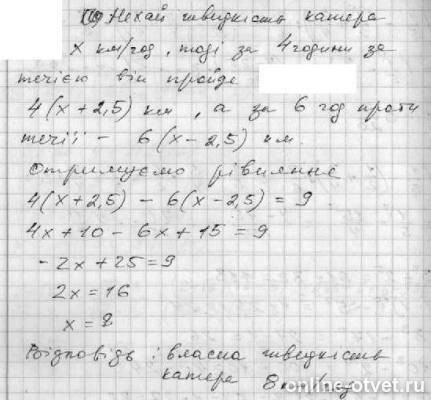 Нехай швидкість катера
x км/год, тоді за 4 години за
течією він пройде
4(x + 2,5) км, а за 6 год проти
течії – 6(x – 2,5) км.
Отримуємо рівняння
4(x + 2,5) – 6(x – 2,5) = 9
4x + 10 – 6x + 15 = 9
-2x + 25 = 9
2x = 16
x = 8
Відповідь: власна швидкість
катера 8 км/год
online-otvet.ru